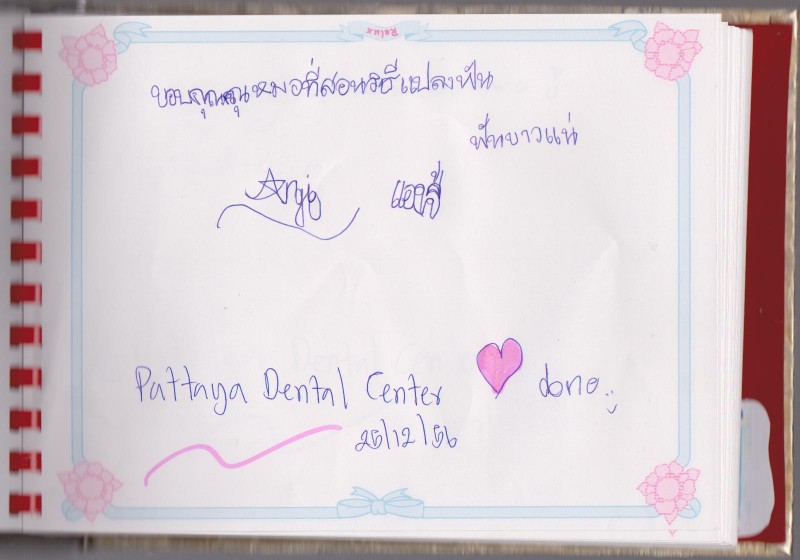 Relax
ขอบคุณคุณหมอที่สอนวิธีแปลงฟัน
ฟันขาวแน่
Angie แองจี้
Pattaya Dental Center done
25/12/56